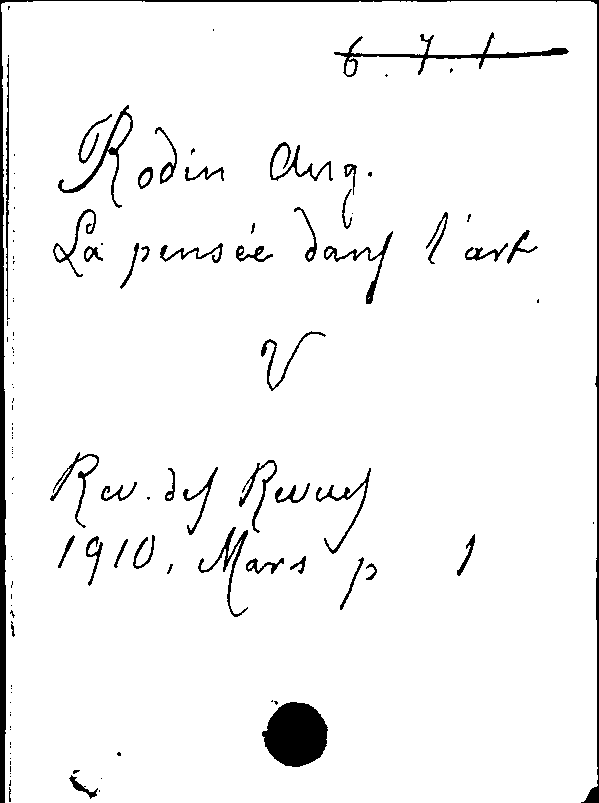 6.7.1
Rodin Aug.
La pensée dans l'art
V
Rev. des Revues
1910, Mars p 1